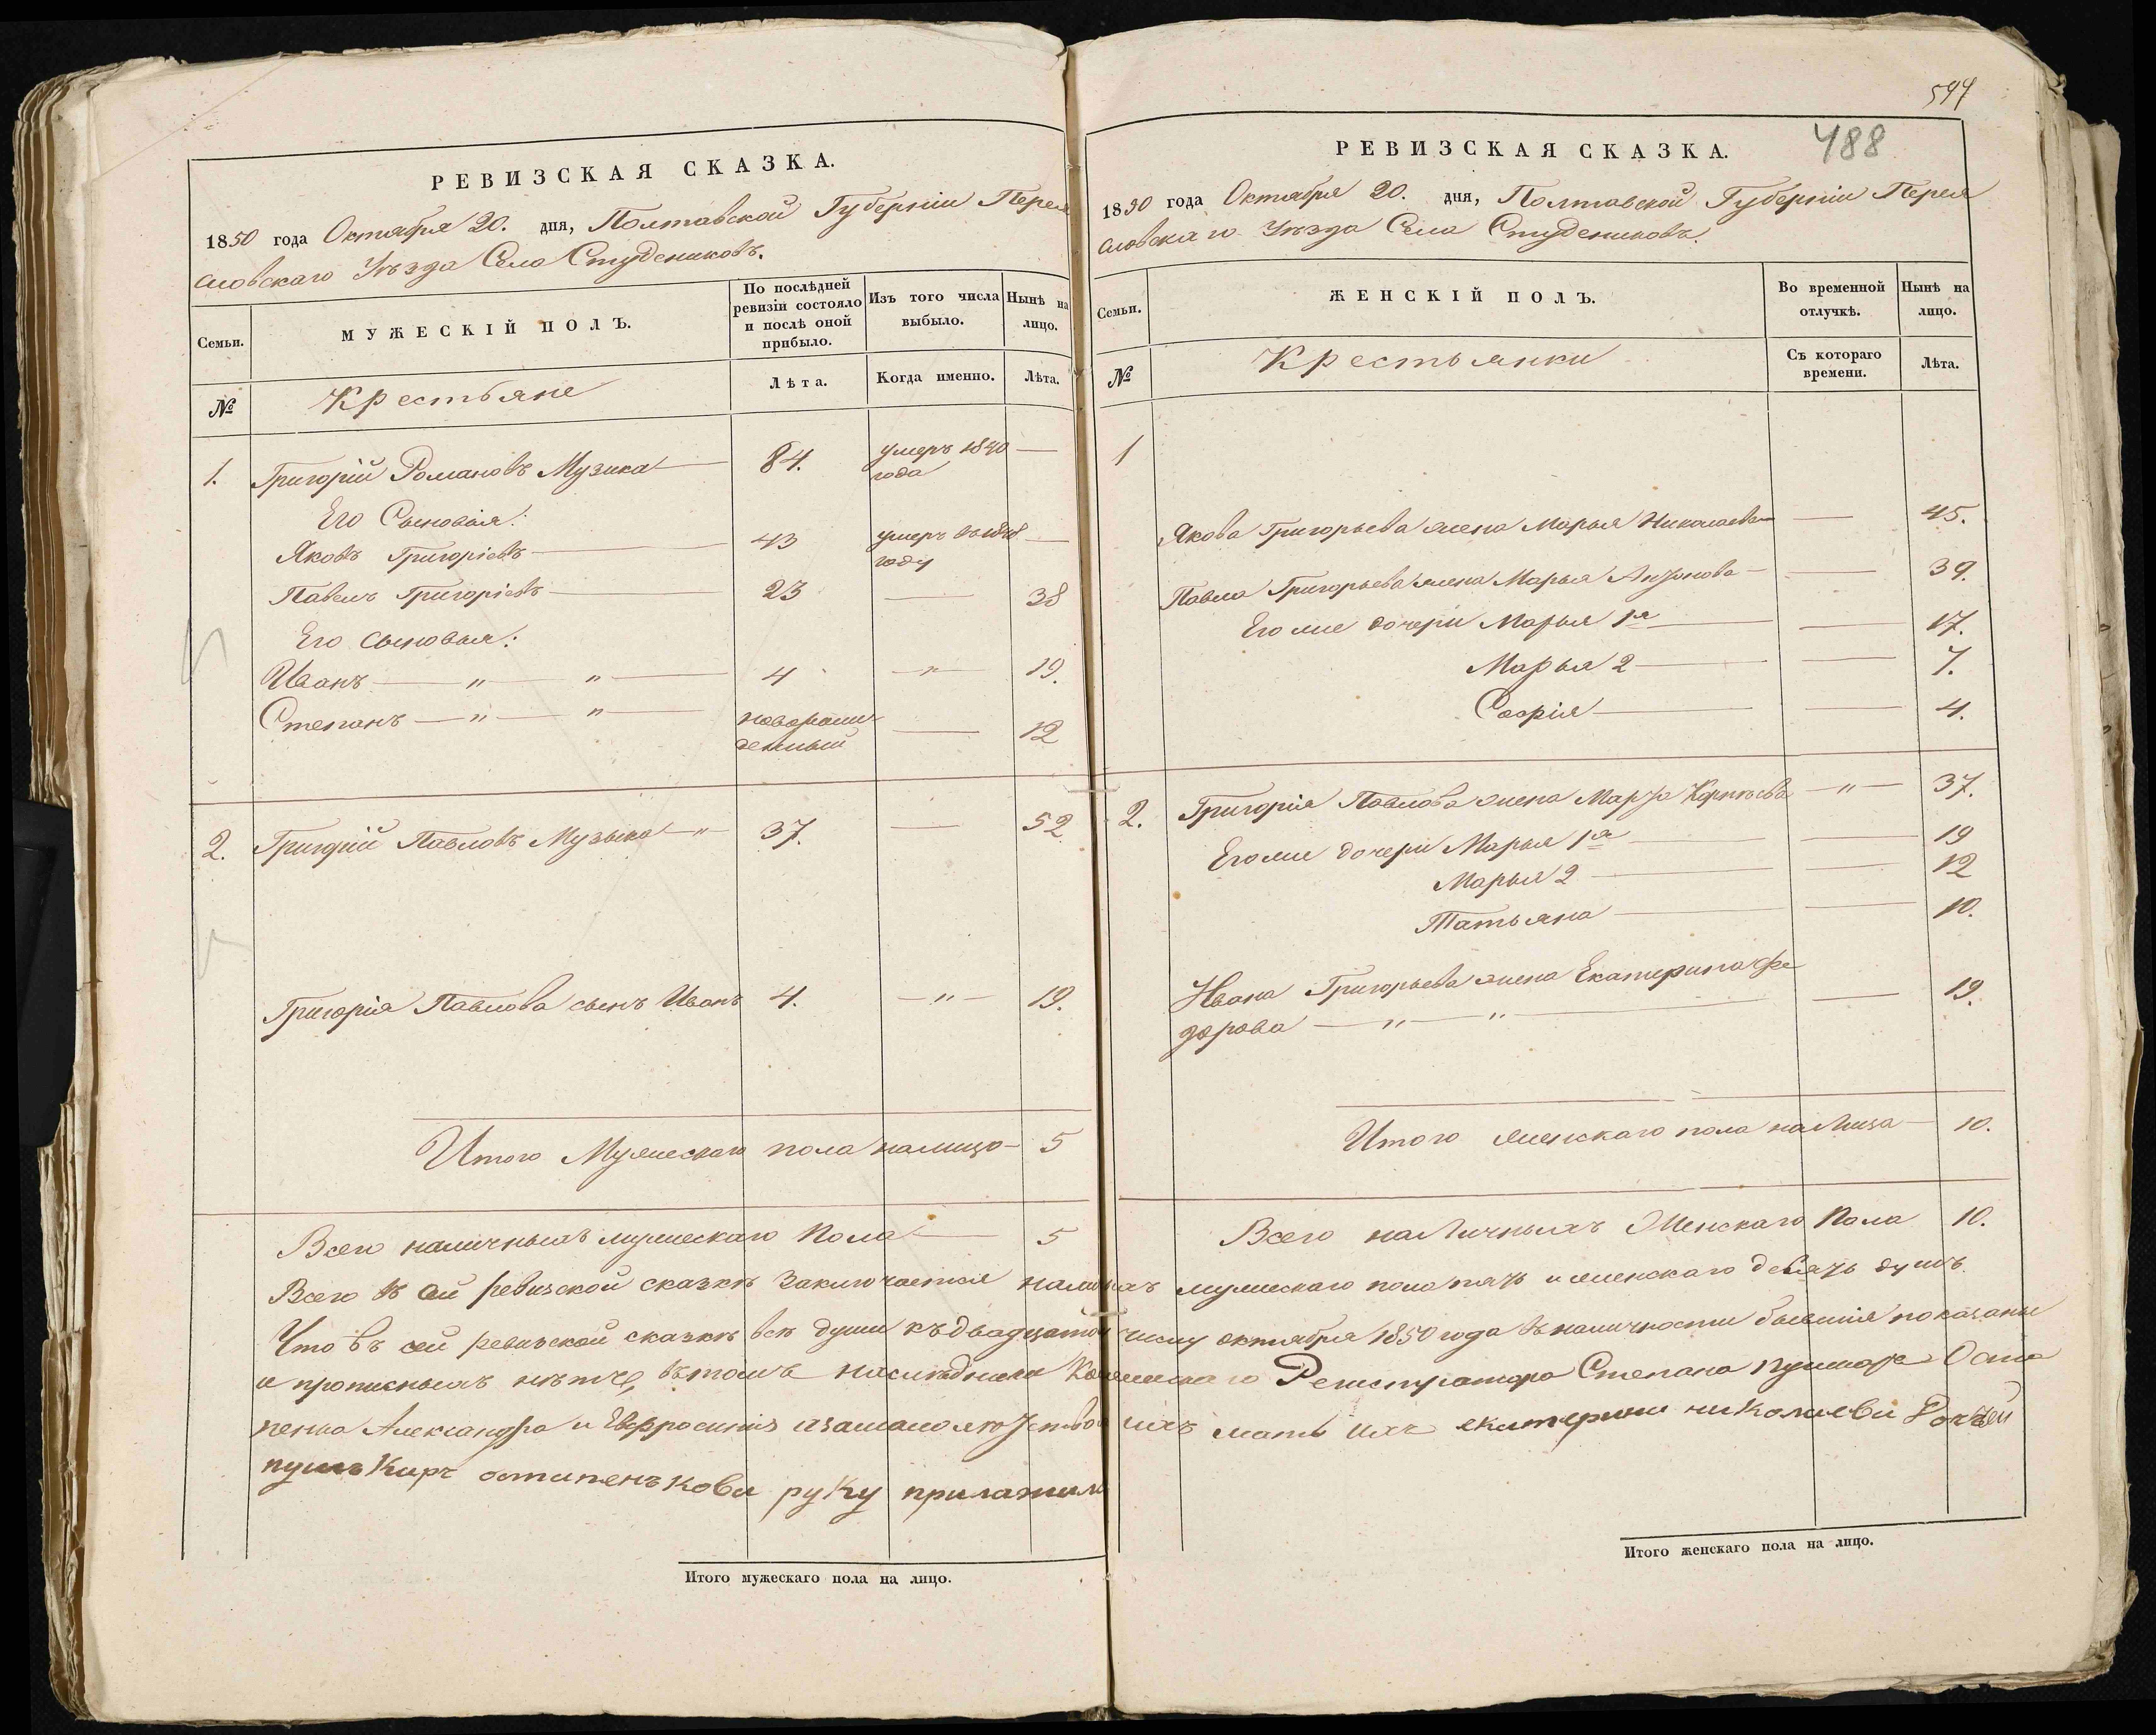 РЕВИЗСКАЯ СКАЗКА.
1850 года Октября 20. дня, Полтавской Губерніи Перея
словскаго Уѣзда Села Студениковъ.
Семьи.
МУЖЕСКІЙ ПОЛЪ.
По послѣдней
ревизіи состояло
и послѣ оной
прибыло.
Изъ того числа
выбыло.
Нынѣ на
лицо.
№
Крестьяне
Лѣта.
Когда именно.
Лѣта.
1. Григорій Романовъ Музика 84. умеръ 1840 года —
Его Сыновія:
Яковъ Григоріевъ 43 умеръ въ 1848 году —
Павелъ Григоріевъ 23 — 38
Его сыновья:
Иванъ — " — " — 4 — " — 19.
Степанъ — " — " — новорож
денный — 12
2. Григорій Павловъ Музыка — " — 37. — 52
Григорія Павлова сынъ Иванъ 4. — " — 19.
Итого Мужескаго пола налицо — 5
Всего наличныхъ мужескаго Пола 5
Итого мужескаго пола на лицо.
594
488
РЕВИЗСКАЯ СКАЗКА.
1850 года Октября 20. дня, Полтавской Губерніи Перея
словскаго Уѣзда Села Студениковъ.
Семьи.
ЖЕНСКІЙ ПОЛЪ.
Во временной
отлучкѣ.
Нынѣ на
лицо.
№
Крестьянки
Съ котораго
времени.
Лѣта.
1
Якова Григорьева жена Марья Николаева — 45.
Павла Григорьева жена Марья Антонова — 39.
Его же дочери Марья 1я — 17.
Марья 2 — 7.
Софія — 4.
2. Григорія Павлова жена Марфа Корнѣева — " — 37.
Его же дочери Марья 1я — 19
Марья 2 — 12
Татьяна — 10.
Ивана Григорьева жена Екатерина Фе
дорова — " — " — 19.
Итого женскаго пола на Лицо — 10.
Всего наЛичныхъ Женскаго Пола 10.
Всего въ сей ревизской сказкѣ заключается налицо мужескаго пола пять и женскаго девять душъ.
Что въ сей ревизской сказкѣ всѣ души къ двадцатому числу октября 1850 года въ наличности бывшія показаны
и прописныхъ нѣтъ, въ томъ наслѣдники Колежскаго Регистратора Степана Пушкаря Оста
пенка Александра и Евфросинія и за малолѣтством ихъ мать ихъ екатерини николаева дочъ
пушъкаръ остапенъкова руку приложила
Итого женскаго пола на лицо.